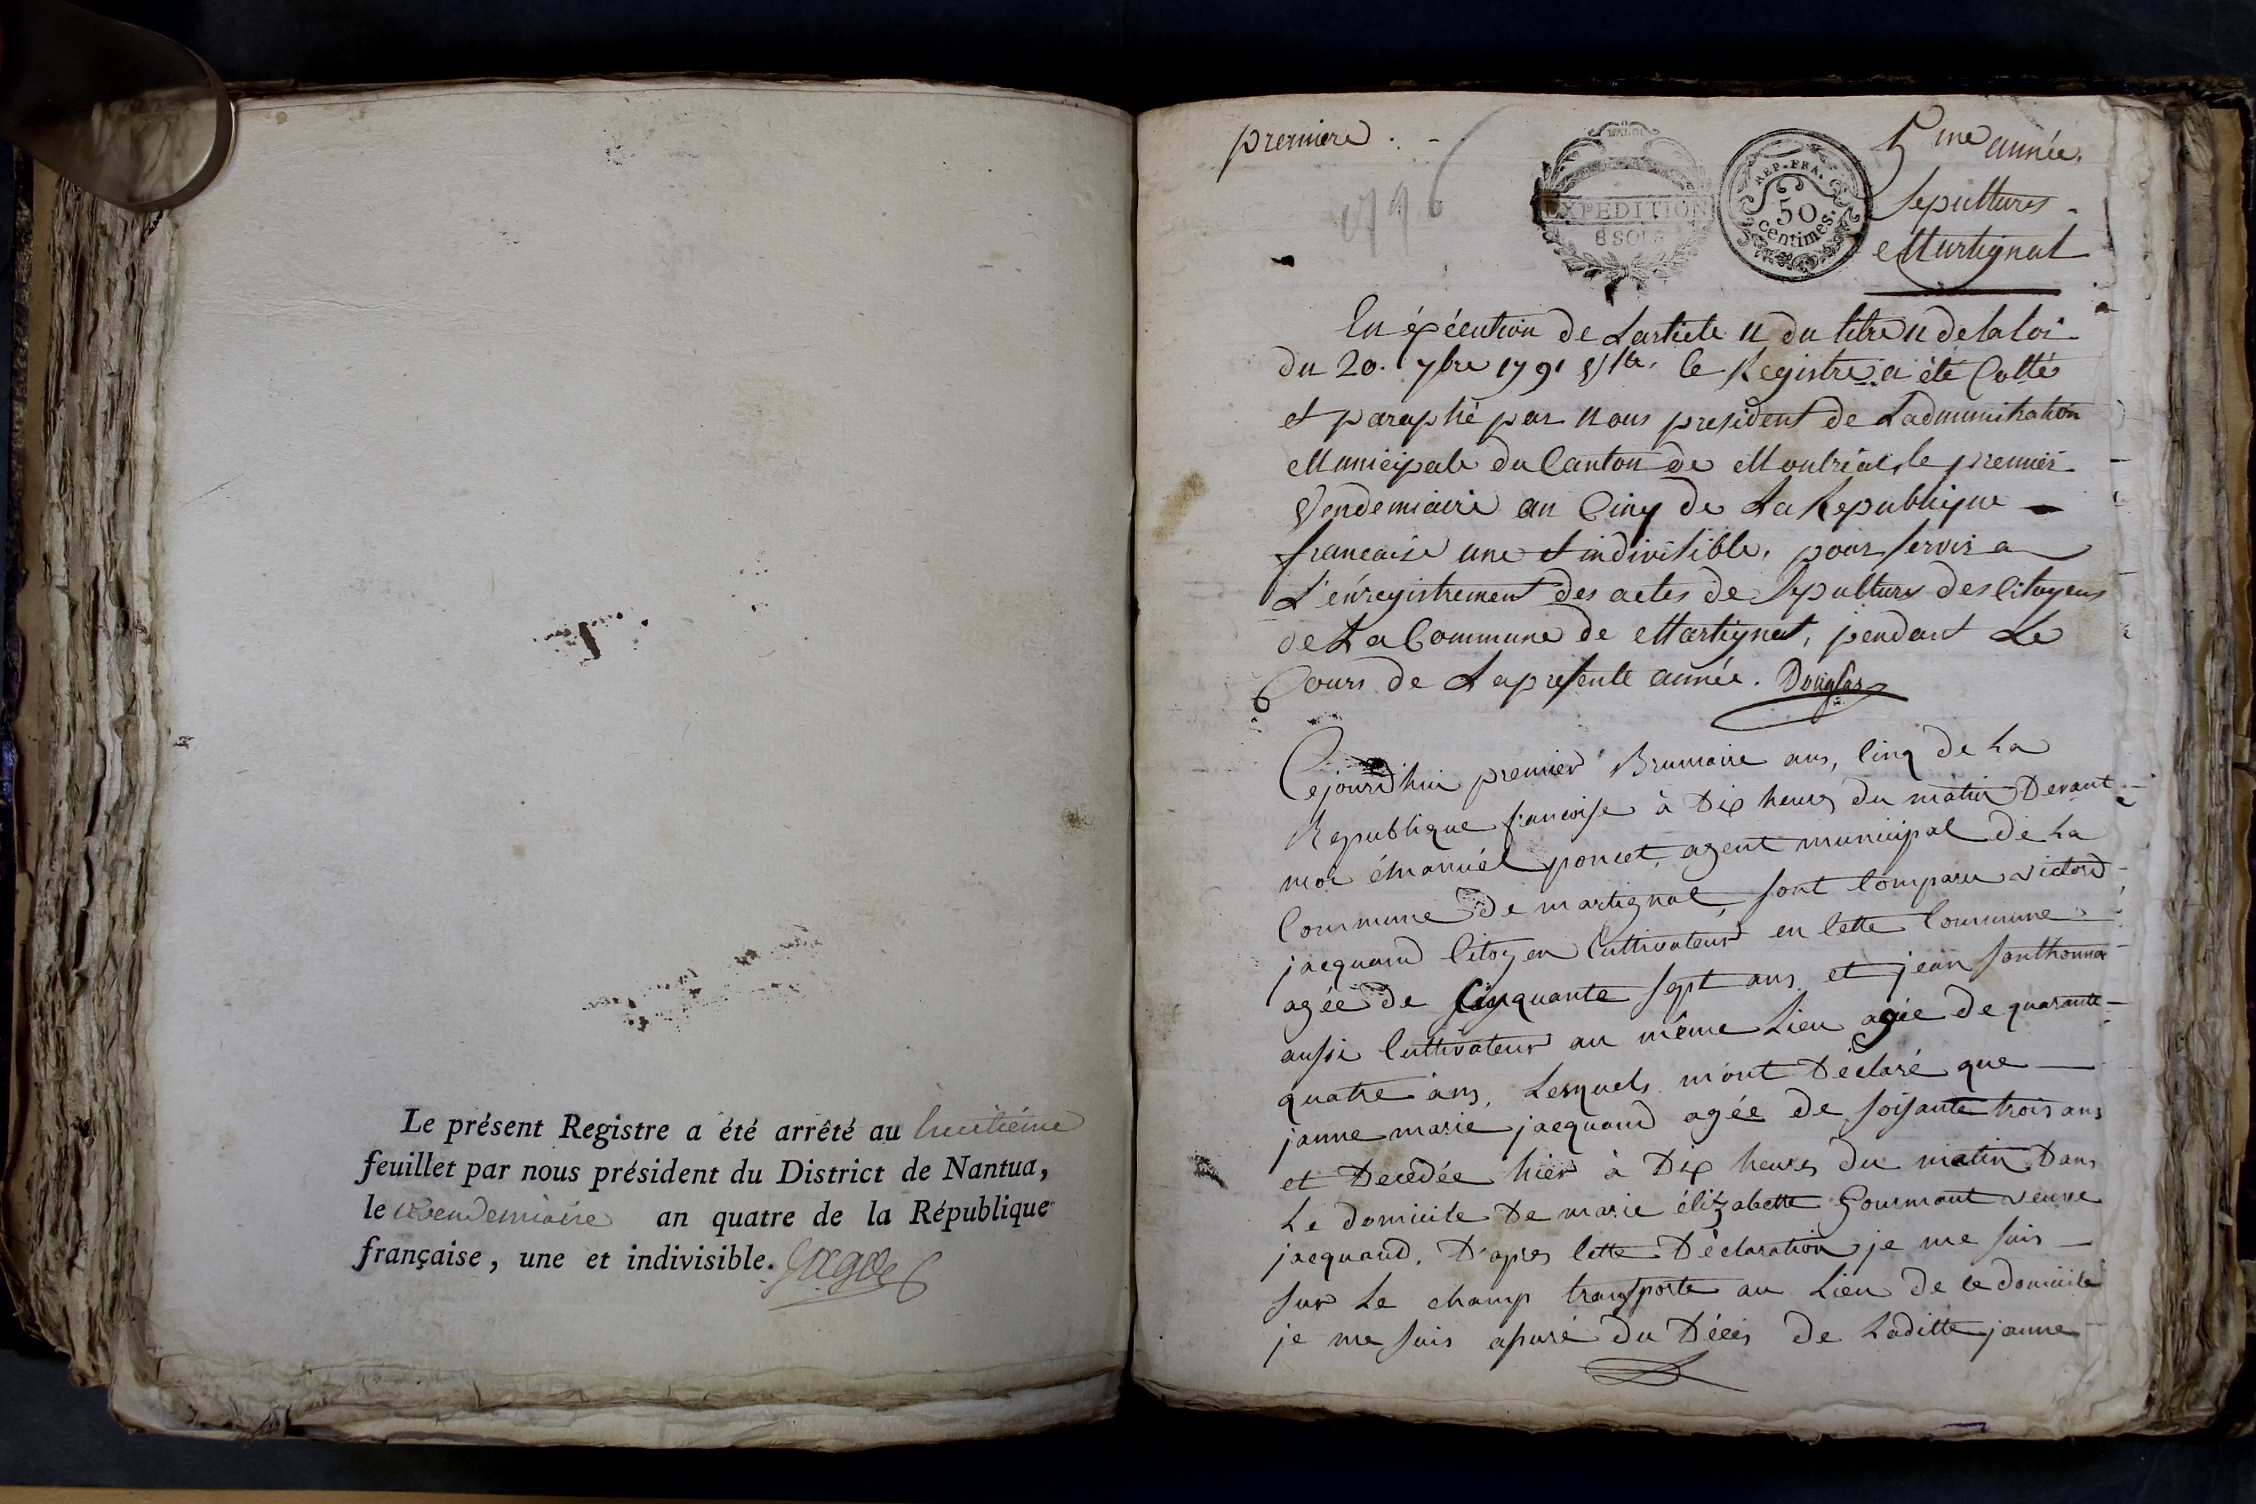 Le présent Registre a été arrêté au huitième
feuillet par nous président du District de Nantua,
le vendemiaire an quatre de la République
française, une et indivisible.
premiere
5me année.
sepultures
Martignat
1796
EXPEDITION
8 SOLS
REP. FRA.
50
centimes.
En éxécution de Larticle 11 du titre 11 de la loi
du 20. 7bre 1791 le Registre a été Cotté
et paraphé par nous president de Ladministration
Municipale du Canton de Montréal, le premier
Vendemiaire an Cinq de La Republique
francaise une et indivisible, pour servir a
L'enregistrement des actes de Sepulture des Citoyens
de La Commune de Martignat, pendant Le
Cours de La presente année. Douglas
Cejourdhui premier Brumaire ans, Cinq de La
Republique francoise à Dix heures du matin Devant
moi émanuél poncet, agent municipal de La
Commune De martignat, sont Comparu victord
jacquand Citoyen Cultivateur en Cette Commune
agée de Cinquante sept ans et jean sonthonna
aussi Cultivateur au même Lieu agée de quarante
quatre ans, Lesquels m'ont Déclaré que
janne marie jacquand agée de soisante trois ans
et Decedée hier à Dix heures du matin Dans
Le domicile De marie élizabette Gourmont veuve
jacquand. D'apres Cette Déclaration je me suis
sur Le champ transporte au Lieu de ce domicile
je me suis assuré du Décès de Laditte janne